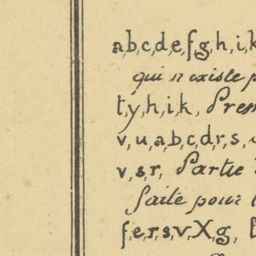 a,b,c,d,e,f,g,h,i,k
qui n'existe p
t,y,h,i,k, Prem
v,u,a,b,c,d,r,s,
v,s,r, Partie
faite pour l
f,e,r,s,v,X,g,